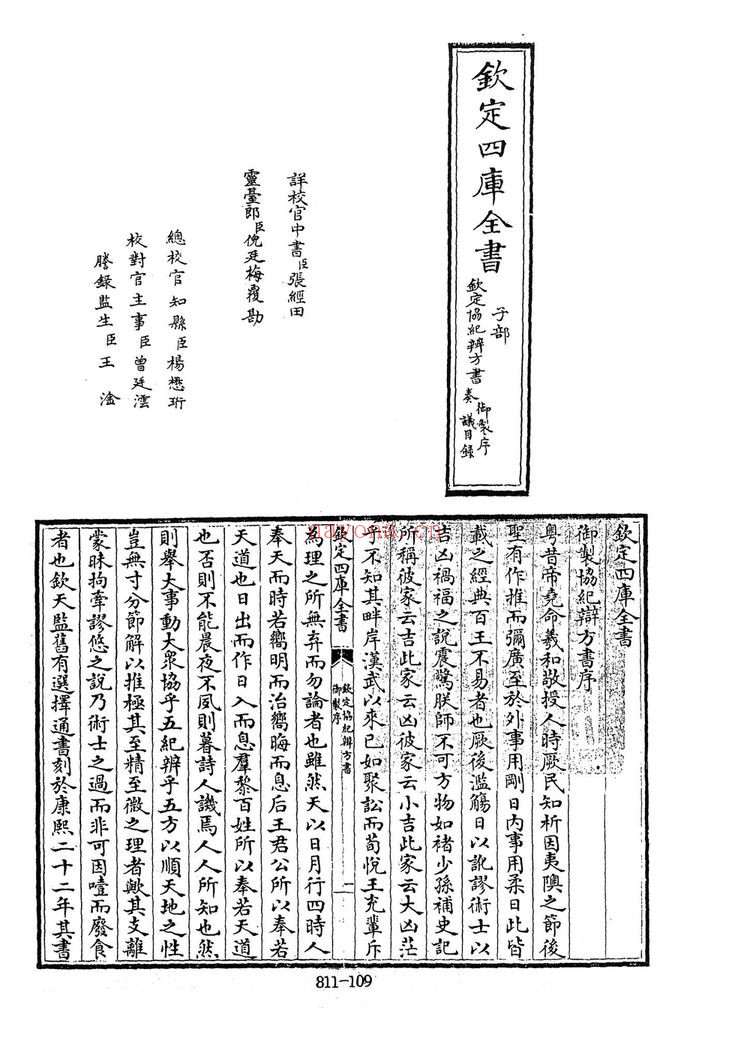 欽定四庫全書
子部
欽定協紀辨方書
御製序
奏議目錄
詳校官中書臣張經田
靈臺郎臣倪廷梅覆勘
總校官知縣臣楊懋珩
校對官主事臣曾廷澐
謄錄監生臣王淦
欽定四庫全書
御製協紀辯方書序
粤昔帝堯命羲和敬授人時厥民知析因夷隩之節後
聖有作推而彌廣至於外事用剛日内事用柔日此皆
載之經典百王不易者也厥後濫觴日以訛謬術士以
吉凶禍福之說震驚朕師不可方物如褚少孫補史記
所稱彼家云吉此家云凶彼家云小吉此家云大凶茫
乎不知其畔岸漢武以來已如聚訟而荀悅王充輩斥
欽定四庫全書
欽定協紀辨方書
御製序
一
為理之所無弃而勿論者也雖然天以日月行四時人
奉天而時若嚮明而治嚮晦而息后王君公所以奉若
天道也日出而作日入而息羣黎百姓所以奉若天道
也否則不能晨夜不夙則暮詩人譏焉人人所知也然
則舉大事動大衆協乎五紀辨乎五方以順天地之性
豈無寸分節解以推極其至精至微之理者歟其支離
蒙昧拘牽謬悠之說乃術士之過而非可因噎而廢食
者也欽天監舊有選擇通書刻於康熙二十二年其書
811-109